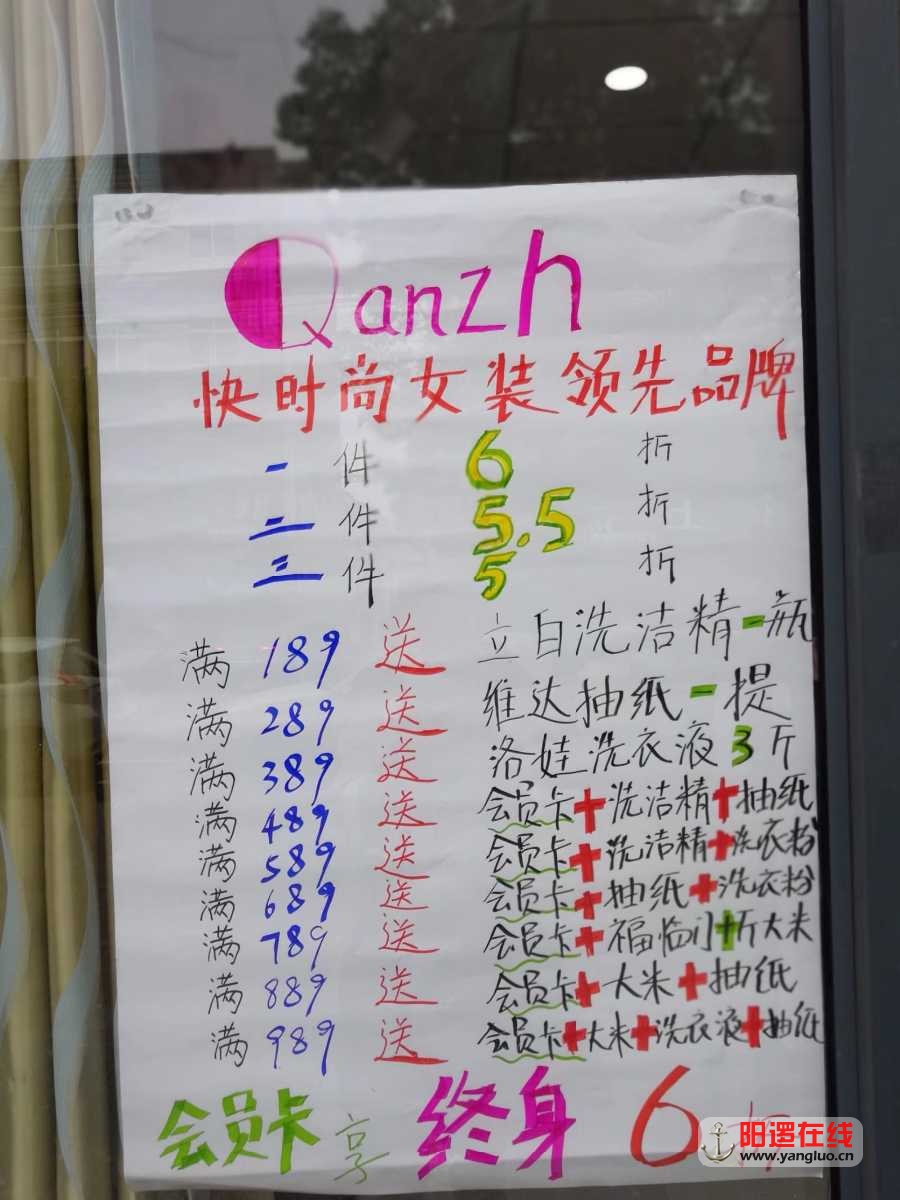 Qanzh
快时尚女装领先品牌
一件 6 折
二件 5.5 折
三件 5 折
满 189 送 立白洗洁精一瓶
满 289 送 维达抽纸一提
满 389 送 洛娃洗衣液3斤
满 489 送 会员卡+洗洁精+抽纸
满 589 送 会员卡+洗洁精+洗衣粉
满 689 送 会员卡+抽纸+洗衣粉
满 789 送 会员卡+福临门十斤大米
满 889 送 会员卡+大米+抽纸
满 989 送 会员卡+大米+洗衣液+抽纸
会员卡享终身6折
阳逻在线
www.yangluo.cn